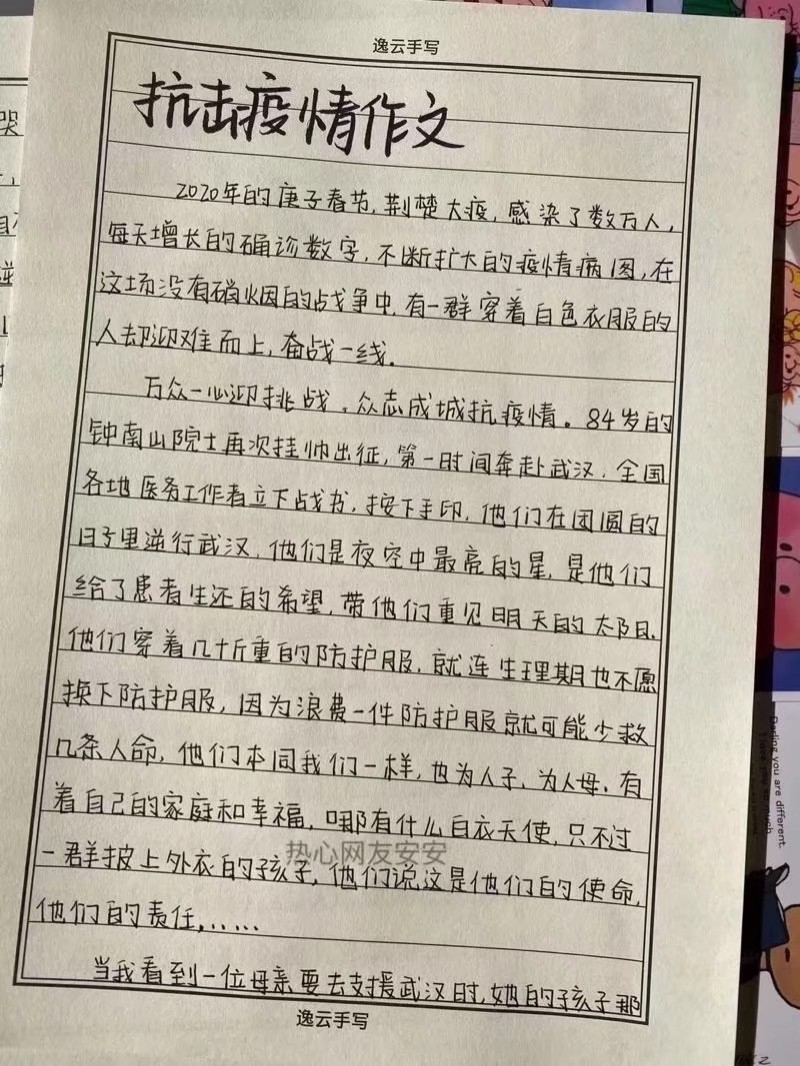 逸云手写
抗击疫情作文
2020年的庚子春节,荆楚大疫,感染了数万人,
每天增长的确诊数字,不断扩大的疫情病图,在
这场没有硝烟的战争中,有一群穿着白色衣服的
人却迎难而上,奋战一线。
万众一心迎挑战,众志成城抗疫情。84岁的
钟南山院士再次挂帅出征,第一时间奔赴武汉,全国
各地医务工作者立下战书,按下手印,他们在团圆的
日子里逆行武汉,他们是夜空中最亮的星,是他们
给了患者生还的希望,带他们重见明天的太阳。
他们穿着几十斤重的防护服,就连生理期也不愿
换下防护服,因为浪费一件防护服就可能少救
几条人命,他们本同我们一样,也为人子,为人母。有
着自己的家庭和幸福,哪有什么白衣天使,只不过
热心网友安安
一群披上外衣的孩子,他们说这是他们的使命,
他们的责任,……
当我看到一位母亲要去支援武汉时,她的孩子那
逸云手写
哭
Darling you are different.